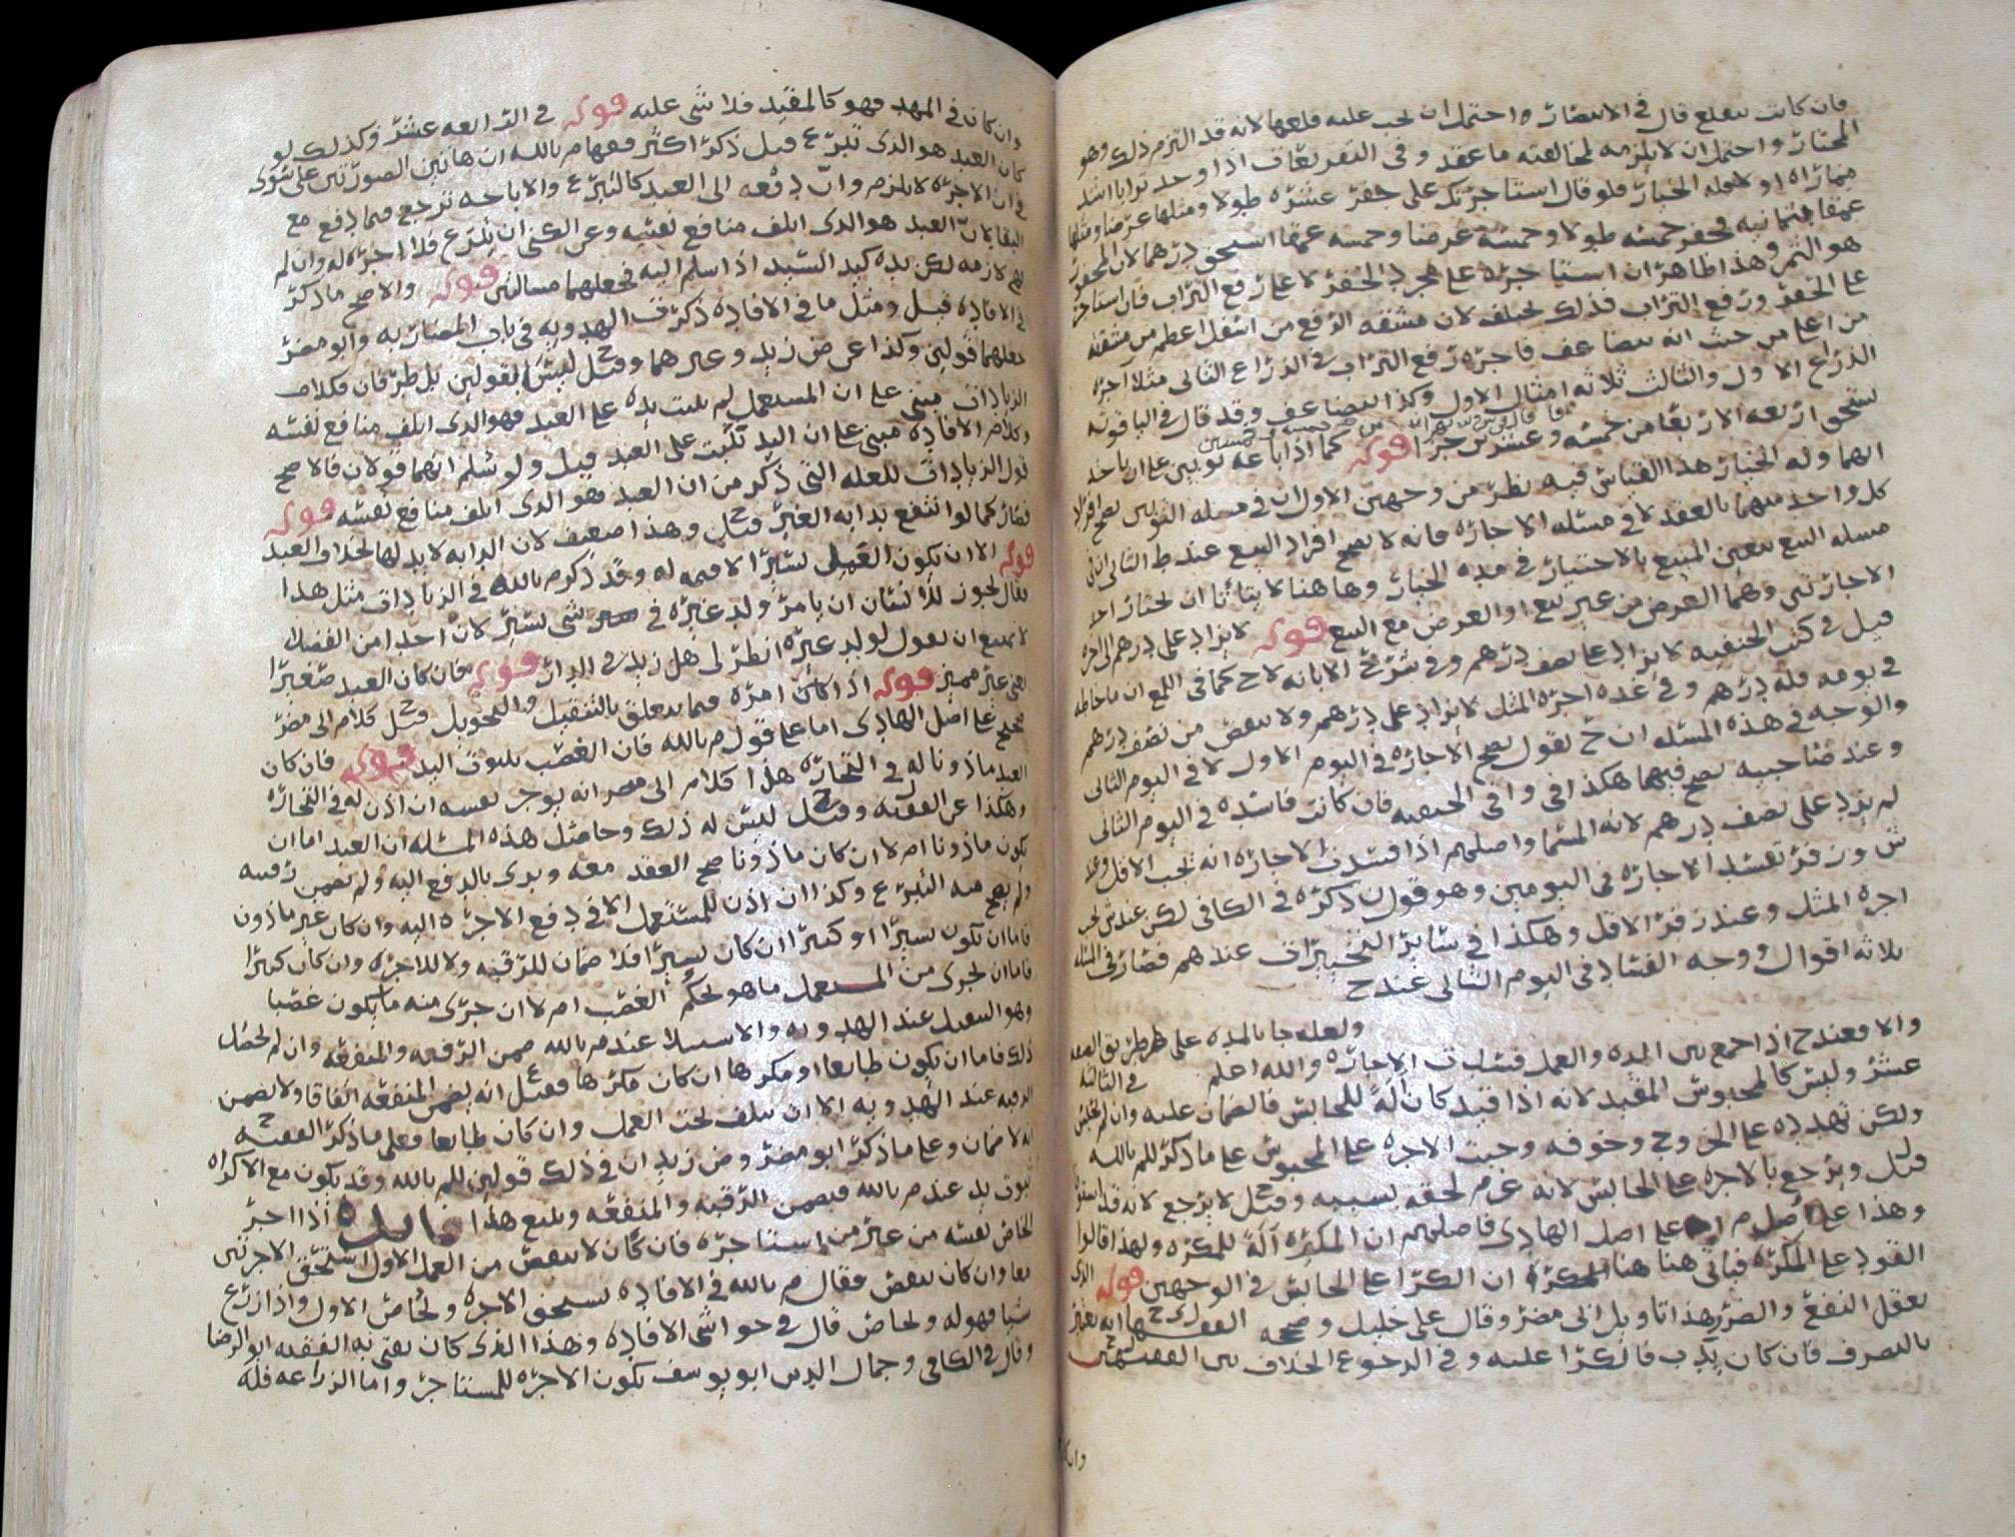 فان كانت تنقلع قال في الانتصار واحتمل ان يجب عليه قلعها لانه قد التزم ذلك وهو
المختار واحتمل ان لا يلزمه لمخالفته ما عقد وفي التقرير اذا وجد ترابا اشد
فله الخيار فلو قال استاجرتك على حفر عشره طولا ومثلها عرضا ومثلها
عمقا فحفر خمسه طولا وخمسه عرضا وخمسه عمقا استحق درهما لان المحفور
هو الثمن وهذا ظاهر ان استاجره على مجرد الحفر لا على رفع التراب فان استاجر
على الحفر ورفع التراب فذلك يختلف لان مشقه الرفع من اسفل اعظم من مشقته
من اعلى من حيث انه يتضاعف فاجره رفع التراب في الذراع الثاني مثلا اجره
الذراع الاول والثالث ثلاثه امثال الاول وكذا يتضاعف وقد قال في الياقوته
يستحق اربعه الا ربعا من خمسه وعشرين جزا قوله كما اذا باعه ثوبين على ان ياخذ
ايهما وله الخيار هذا القياس فيه نظر من وجهين الاول ان في مسله الثوبين يصح افراد
كل واحد منهما بالعقد لا في مسئله الاجاره فانه لا يصح افراد البيع عند ط الثاني ان في
مسله البيع يتعين المبيع بالاختيار في مده الخيار وها هنا لا يتاتا ان يختار احد
الاجارتين وهما الغرض من غير بيع او العرض مع البيع قوله لا يزاد على درهم
قيل في كتب الحنفيه لا يزاد على نصف درهم وفي شرح الابانه لاح كما في اللمع ان ما خاطه
في يومه فله درهم وفي غده اجره المثل لا يزاد على درهم ولا ينقص من نصف درهم
والوجه في هذه المسئله ان ح يقول يصح الاجاره في اليوم الاول لا في اليوم الثاني
وعند صاحبيه يصح فيهما هكذا في وافي الحنفيه فان كانت فاسده في اليوم الثاني
لم يزد على نصف درهم لانه المسما واصلهم اذا فسدت الاجاره انه يجب الاقل وعند
ش وزفر تفسد الاجاره في اليومين وهو قول ن ذكره في الكافي لكن عند ش يجب
اجره المثل وعند زفر الاقل وهكذا في سائر التخييرات عندهم فصار في المسله
ثلاثه اقوال ووجه الفساد في اليوم الثاني عند ح
ولعله جا بالمده على طريق
والا فعند ح اذا جمع بين المده والعمل فسدت الاجاره والله اعلم في الثالثه
عشر وليس كالمحبوس المقيد لانه اذا قيد كان آلة للحابس فالضمان عليه وان لم
ولكن تهدده على الخروج وخوفه وجبت الاجره على المحبوس على ما ذكر للم بالله
قيل ويرجع بالاجره على الحابس لانه غرم لحقه بسببه وقيل لا يرجع لانه قد استوفى
وهذا على اصل م على اصل الهادي فاصلهم ان المكره آلة للمكره ولهذا قالوا
القود على المكره فياتي هنا ان الكرا على الحابس في الوجهين قوله الذي
يعقل النفع والضرر هذا تاويل ابي مضر وقال علي خليل وصححه الفقيه
بالتصرف فان كان يكذب فالكرا عليه وفي الرجوع الخلاف بين الفقيهين
وان كان
وان كان في المهد فهو كالمقيد فلا شي عليه قوله في الرابعه عشر وكذلك لو
كان العبد هو الذي تبرع قيل ذكر اكثر فقها م بالله ان هاتين الصورتين على سوى
في ان الاجره لا يلزم وان دفعه الى العبد كالتبرع والاباحه ترجع فيما دفع مع
البقا لان العبد هو الذي اتلف منافع نفسه وعن الكني ان تبرع فلا اجره له وان لم
فهي لازمه لكن يده كيد السيد اذا سلم اليه فجعلهما مسالتين قوله والاصح ما ذكر
في الافاده قيل ومثل ما في الافاده ذكرت الهدويه في باب المضاربه وابو مضر
جعلهما قولين وكذا عن ض زيد وغيرهما وقيل ليس القولين بل طرفان فكلام
الزيادات مبني على ان المستعمل لم يثبت يده على العبد فهو الذي اتلف منافع نفسه
وكلام الافاده مبني على ان اليد تثبت على العبد قيل ولو سلم انهما قولان فالاصح
قول الزيادات للعله التي ذكر من ان العبد هو الذي اتلف منافع نفسه قوله
فصار كما لو انتفع بدابه الغير قيل وهذا ضعيف لان الدابه لا يد لها بخلاف العبد
قوله الا ان يكون العمل يسيرا لا قيمه له وقد ذكر م بالله في الزيادات مثل هذا
فقال يجوز للانسان ان يامر ولد غيره في شي يسير لان احدا من الفضلا
لا يمتنع ان يقول لولد غيره انظر لي هل زيد في الدار قوله فان كان العبد صغيرا
يعني غير مميز قوله اذا كان امره فيما يتعلق بالتنقيل والتحويل قيل كلام ابي مضر
صحيح على اصل الهادي اما على قول م بالله فان الغصب بثبوت اليد قوله فان كان
العبد ماذونا له في التجاره هذا كلام ابي مضر انه يوجر نفسه ان اذن له في التجاره
وهكذا عن الفقيه ل وقيل ليس له ذلك وحاصل هذه المسئله ان العبد اما ان
يكون ماذونا ام لا ان كان ماذونا صح العقد معه وبري بالدفع اليه ولم يضمن رقبته
ولم يصح منه التبرع وكذا ان اذن للمستعمل الا في دفع الاجره اليه وان كان غير ماذون
فاما ان يكون يسيرا او كثيرا ان كان يسيرا فلا ضمان للرقبه ولا للاجره وان كان كثيرا
فاما ان يجري من المستعمل ما هو بحكم الغصب ام لا ان جرى منه ما يكون غصبا
وهو التنقيل عند الهدويه والاستيلا عند م بالله ضمن الرقبه والمنفعه وان لم يحصل
ذلك فاما ان يكون طايعا او مكرها ان كان مكرها فقيل انه يضمن المنفعه اتفاقا ولا يضمن
الرقبه عند الهدويه الا ان يتلف تحت العمل وان كان طايعا فعلى ما ذكر الفقيه
انه لا ضمان وعلى ما ذكر ابو مضر وض زيد ان في ذلك قولين للم بالله وقد يكون مع الاكراه
ثبوت يد عند م بالله فيضمن الرقبه والمنفعه ويتبع هذا فائده اذا اجر
الخاص نفسه من غير من استاجره فان كان لا ينقص من العمل الاول استحق الاجرتين
معا وان كان ينقص فقال م بالله في الافاده يستحق الاجره ويحاص الاول واذا زرع
شيا فهو له ويحاص قال في حواشي الافاده وهذا الذي كان يفتي به الفقيه ابو الرضا
وقال في الكافي وجمال الدين ابو يوسف يكون الاجره للمستاجر واما الزراعه فله